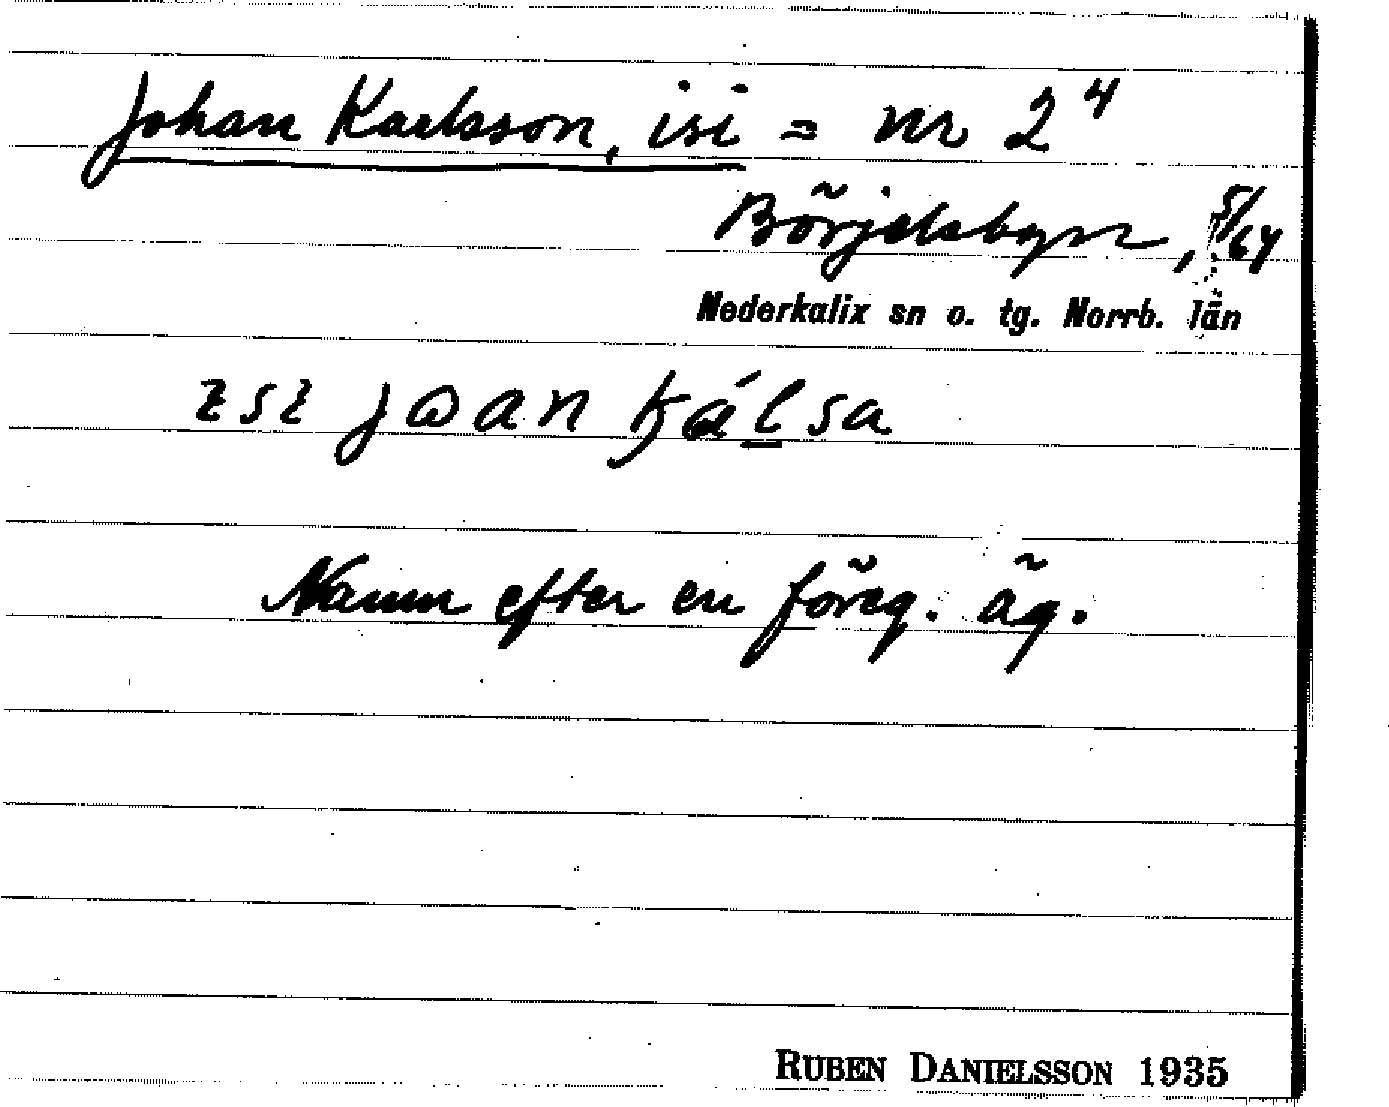 Johan Karlsson, isi = nr 2⁴
Börjelsbyn, 5/64
Nederkalix sn o. tg. Norrb. län
ɩsɩ jɷan kálsa
Namn efter en föreg. äg.
RUBEN DANIELSSON 1935